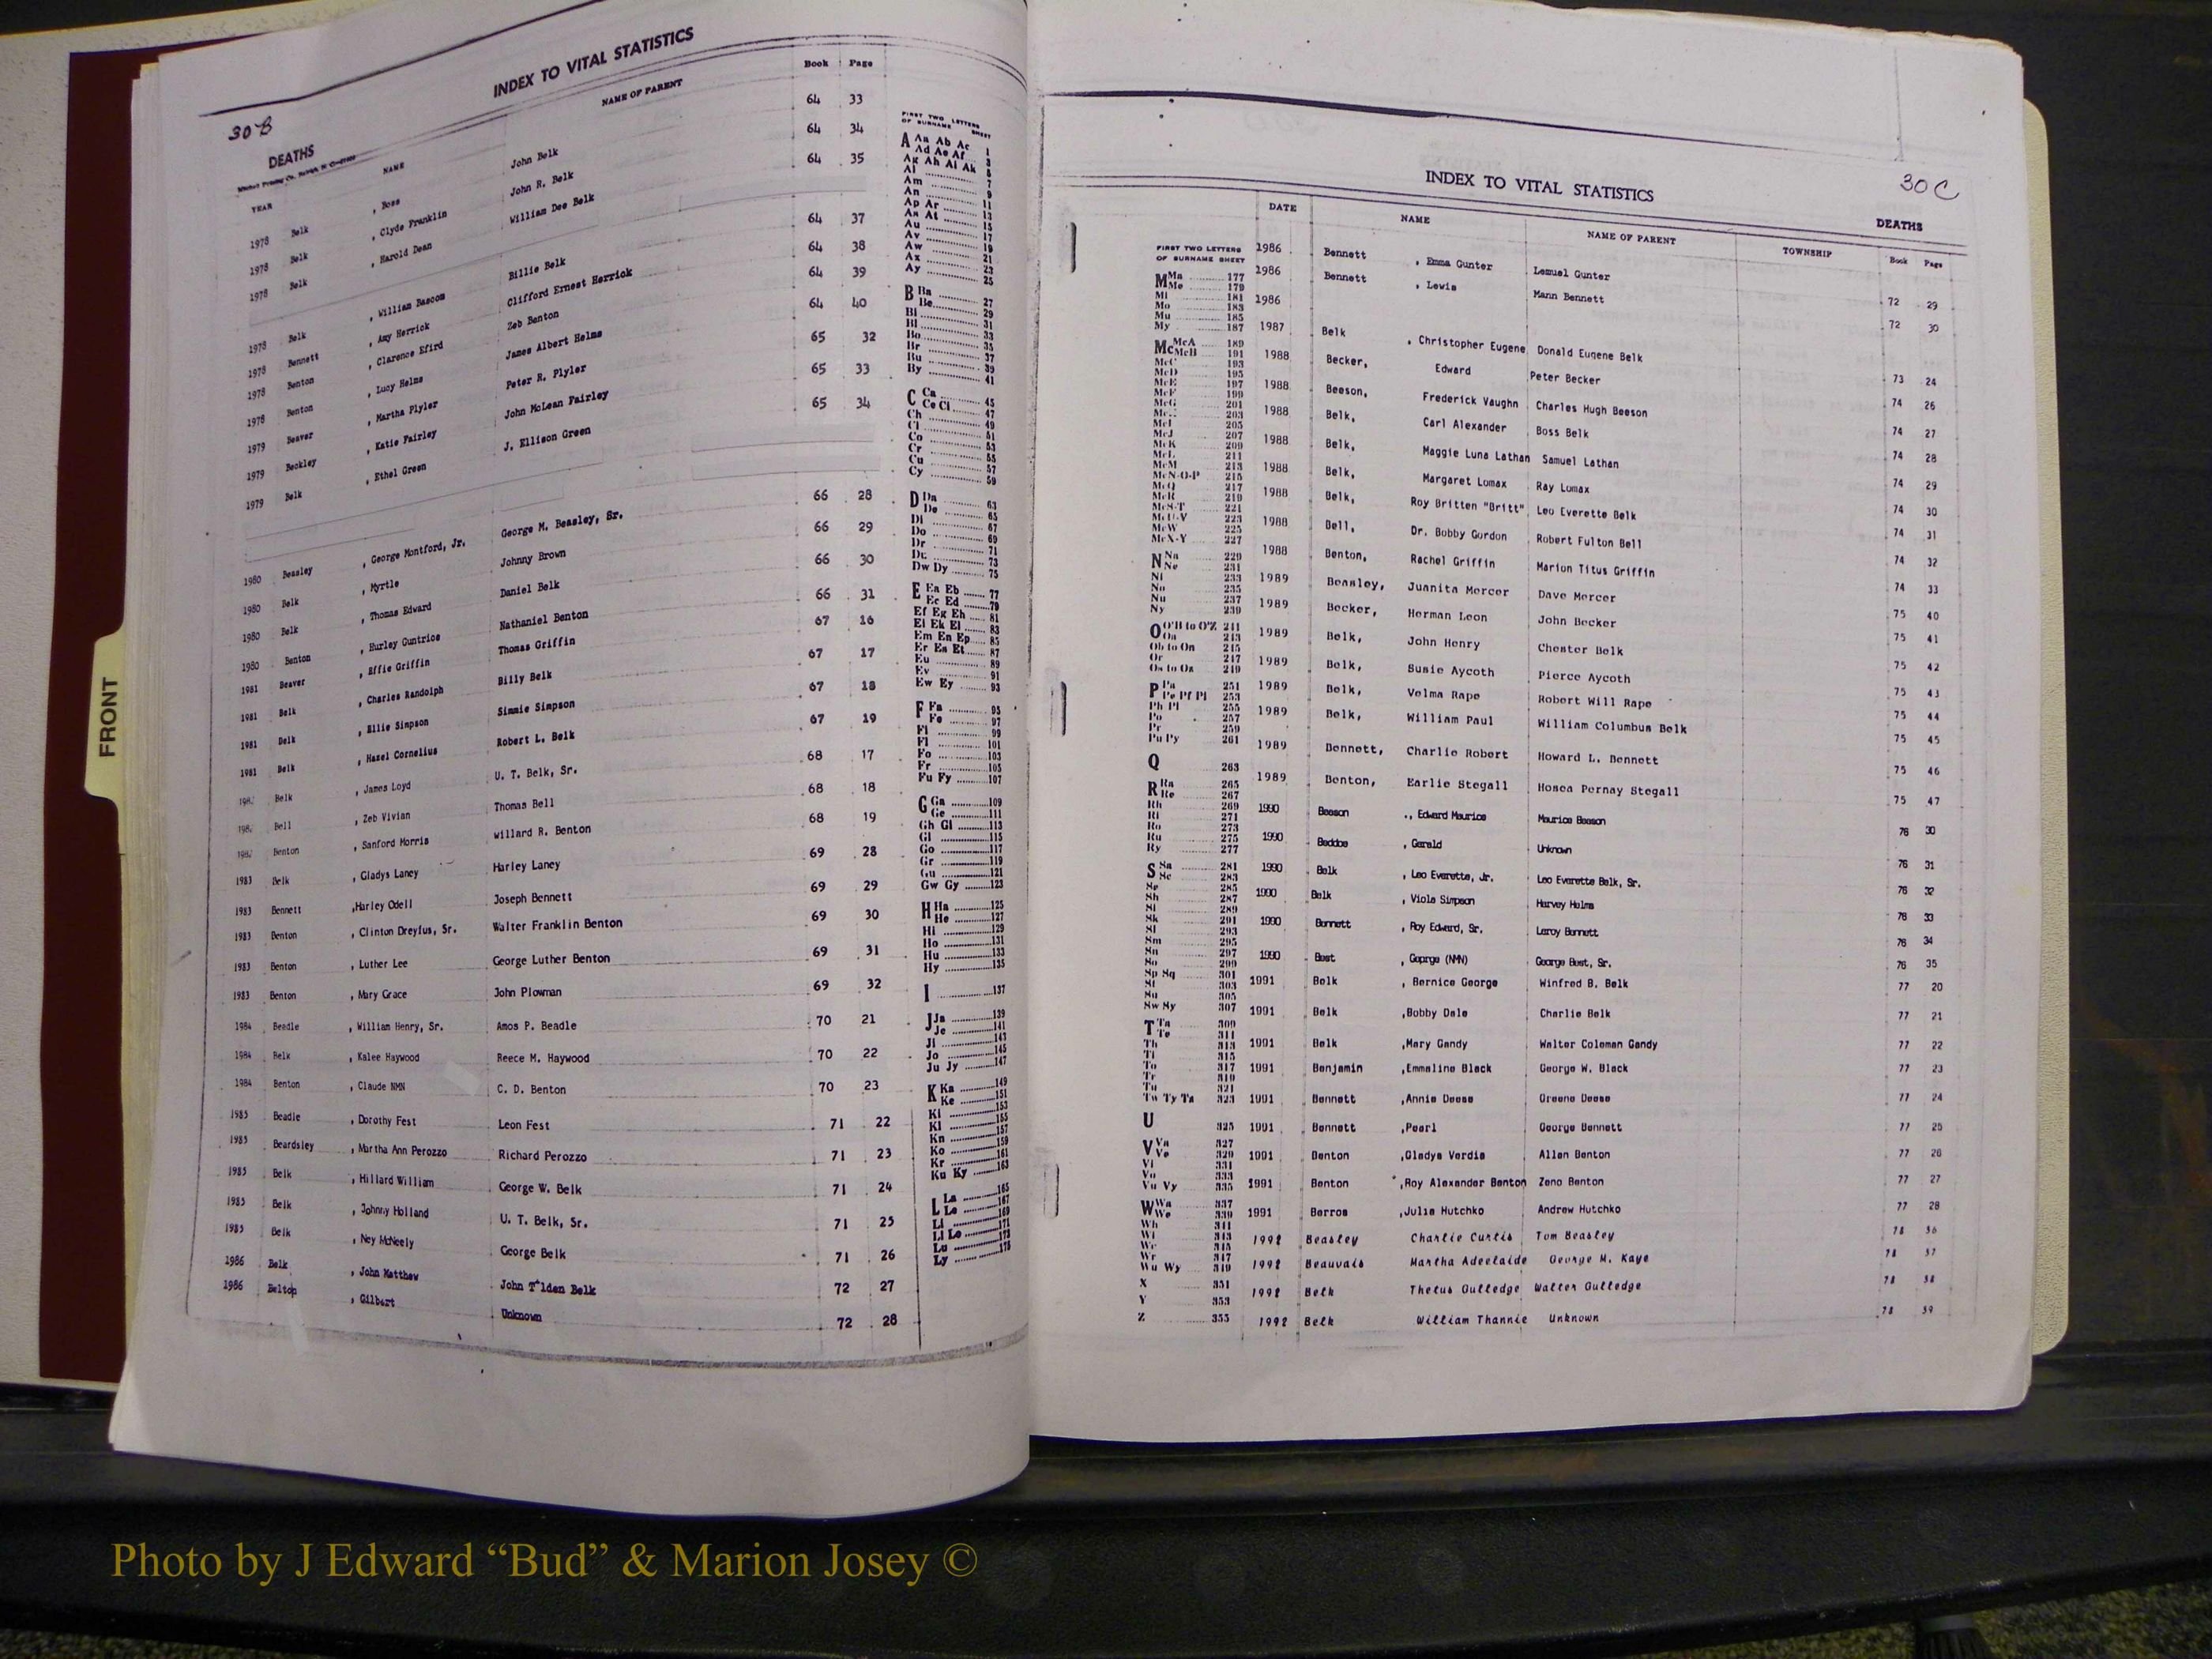 INDEX TO VITAL STATISTICS
30-B
DEATHS
YEAR NAME NAME OF PARENT Book Page
1978 Belk , Boss John Belk 64 33
1978 Belk , Clyde Franklin John R. Belk 64 34
1978 Belk , Harold Dean William Dee Belk 64 35
1978 Belk , William Bascom Billie Belk 64 37
1978 Bennett , Amy Herrick Clifford Ernest Herrick 64 38
1978 Benton , Clarence Efird Zeb Benton 64 39
1978 Benton , Lucy Helms James Albert Helms 64 40
1979 Beaver , Martha Plyler Peter R. Plyler 65 32
1979 Beckley , Katie Fairley John McLean Fairley 65 33
1979 Belk , Ethel Green J. Ellison Green 65 34
1980 Beasley , George Montford, Jr. George M. Beasley, Sr. 66 28
1980 Belk , Myrtle Johnny Brown 66 29
1980 Belk , Thomas Edward Daniel Belk 66 30
1980 Benton , Hurley Guntrice Nathaniel Benton 66 31
1981 Beaver , Effie Griffin Thomas Griffin 67 16
1981 Belk , Charles Randolph Billy Belk 67 17
1981 Belk , Ellie Simpson Simmie Simpson 67 18
1981 Belk , Hazel Cornelius Robert L. Belk 67 19
Belk , James Loyd U. T. Belk, Sr. 68 17
Bell , Zeb Vivian Thomas Bell 68 18
Benton , Sanford Morris Willard R. Benton 68 19
1983 Belk , Gladys Laney Harley Laney 69 28
1983 Bennett ,Harley Odell Joseph Bennett 69 29
1983 Benton , Clinton Dreyfus, Sr. Walter Franklin Benton 69 30
1983 Benton , Luther Lee George Luther Benton 69 31
1983 Benton , Mary Grace John Plowman 69 32
1984 Beadle , William Henry, Sr. Amos P. Beadle 70 21
1984 Belk , Kalee Haywood Reece M. Haywood 70 22
1984 Benton , Claude NMN C. D. Benton 70 23
1985 Beadle , Dorothy Fest Leon Fest 71 22
1985 Beardsley , Martha Ann Perozzo Richard Perozzo 71 23
1985 Belk , Hillard William George W. Belk 71 24
1985 Belk , Johnny Holland U. T. Belk, Sr. 71 25
1985 Belk , Ney McNeely George Belk 71 26
1986 Belk , John Matthew John Tilden Belk 72 27
1986 Belton , Gilbert Unknown 72 28
FIRST TWO LETTERS
OF SURNAME SHEET
A Aa Ab Ac 1
Ad Ae Af 3
Ag Ah Ai Ak 5
Al 7
Am 9
An 11
Ap Ar 13
As At 15
Au 17
Av 19
Aw 21
Ax 23
Ay 25
B Ba 27
Be 29
Bi 31
Bl 33
Bo 35
Br 37
Bu 39
By 41
C Ca 45
Ce Ci 47
Ch 49
Cl 51
Co 53
Cr 55
Cu 57
Cy 59
D Da 63
De 65
Di 67
Do 69
Dr 71
Du 73
Dw Dy 75
E Ea Eb 77
Ec Ed 79
Ef Eg Eh 81
Ei Ek El 83
Em En Ep 85
Er Es Et 87
Eu 89
Ev 91
Ew Ey 93
F Fa 95
Fe 97
Fi 99
Fl 101
Fo 103
Fr 105
Fu Fy 107
G Ga 109
Ge 111
Gh Gi 113
Gl 115
Go 117
Gr 119
Gu 121
Gw Gy 123
H Ha 125
He 127
Hi 129
Ho 131
Hu 133
Hy 135
I 137
J Ja 139
Je 141
Ji 143
Jo 145
Ju Jy 147
K Ka 149
Ke 151
Ki 153
Kl 155
Kn 157
Ko 159
Kr 161
Ku Ky 163
L La 165
Le 167
Li 169
Ll Lo 171
Lu 173
Ly 175
FRONT
INDEX TO VITAL STATISTICS
30 C
DEATHS
DATE NAME NAME OF PARENT TOWNSHIP Book Page
1986 Bennett , Emma Gunter Lemuel Gunter 72 29
1986 Bennett , Lewis Mann Bennett 72 30
1986
1987 Belk , Christopher Eugene Donald Eugene Belk 73 24
1988 Becker, Edward Peter Becker 74 26
1988 Beeson, Frederick Vaughn Charles Hugh Beeson 74 27
1988 Belk, Carl Alexander Boss Belk 74 28
1988 Belk, Maggie Luna Lathan Samuel Lathan 74 29
1988 Belk, Margaret Lomax Ray Lomax 74 30
1988 Belk, Roy Britten "Britt" Leo Everette Belk 74 31
1988 Bell, Dr. Bobby Gordon Robert Fulton Bell 74 32
1988 Benton, Rachel Griffin Marion Titus Griffin 74 33
1989 Beasley, Juanita Mercer Dave Mercer 75 40
1989 Becker, Herman Leon John Becker 75 41
1989 Belk, John Henry Chester Belk 75 42
1989 Belk, Susie Aycoth Pierce Aycoth 75 43
1989 Belk, Velma Rape Robert Will Rape 75 44
1989 Belk, William Paul William Columbus Belk 75 45
1989 Bennett, Charlie Robert Howard L. Bennett 75 46
1989 Benton, Earlie Stegall Hosea Pernay Stegall 75 47
1990 Beeson ., Edward Maurice Maurice Beeson 76 30
1990 Beddoe , Gerald Unknown 76 31
1990 Belk , Leo Everette, Jr. Leo Everette Belk, Sr. 76 32
1990 Belk , Viola Simpson Harvey Helms 76 33
1990 Bennett , Roy Edward, Sr. Leroy Bennett 76 34
1990 Best , George (NMN) George Best, Sr. 76 35
1991 Belk , Bernice George Winfred B. Belk 77 20
1991 Belk ,Bobby Dale Charlie Belk 77 21
1991 Belk ,Mary Gandy Walter Coleman Gandy 77 22
1991 Benjamin ,Emmaline Black George W. Black 77 23
1991 Bennett ,Annie Deese Greene Deese 77 24
1991 Bennett ,Pearl George Bennett 77 25
1991 Benton ,Gladys Verdia Allen Benton 77 26
1991 Benton ,Roy Alexander Benton Zeno Benton 77 27
1991 Berros ,Julia Hutchko Andrew Hutchko 77 28
1992 Beasley Charlie Curtis Tom Beasley 78 36
1992 Beauvais Martha Adeelaide George M. Kaye 78 37
1992 Belk Thetus Gulledge Walter Gulledge 78 38
1992 Belk William Thannie Unknown 78 39
FIRST TWO LETTERS
OF SURNAME SHEET
M Ma 177
Me 179
Mi 181
Mo 183
Mu 185
My 187
Mc McA 189
McB 191
McC 193
McD 195
McE 197
McF 199
McG 201
203
McI 205
McJ 207
McK 209
McL 211
McM 213
McN-O-P 215
McQ 217
McR 219
McS-T 221
McU-V 223
McW 225
McX-Y 227
N Na 229
Ne 231
Ni 233
No 235
Nu 237
Ny 239
O O'B to O'Z 241
Oa 243
Ob to On 245
Or 247
Os to Oz 249
P Pa 251
Pe Pf Pi 253
Ph Pl 255
Po 257
Pr 259
Pu Py 261
Q 263
R Ra 265
Re 267
Rh 269
Ri 271
Ro 273
Ru 275
Ry 277
S Sa 281
Sc 283
Se 285
Sh 287
Si 289
Sk 291
Sl 293
Sm 295
Sn 297
So 299
Sp Sq 301
St 303
Su 305
Sw Sy 307
T Ta 309
Te 311
Th 313
Ti 315
To 317
Tr 319
Tu 321
Tw Ty Tz 323
U 325
V Va 327
Ve 329
Vi 331
Vo 333
Vu Vy 335
W Wa 337
We 339
Wh 341
Wi 343
Wo 345
Wr 347
Wu Wy 349
X 351
Y 353
Z 355
Photo by J Edward “Bud” & Marion Josey ©